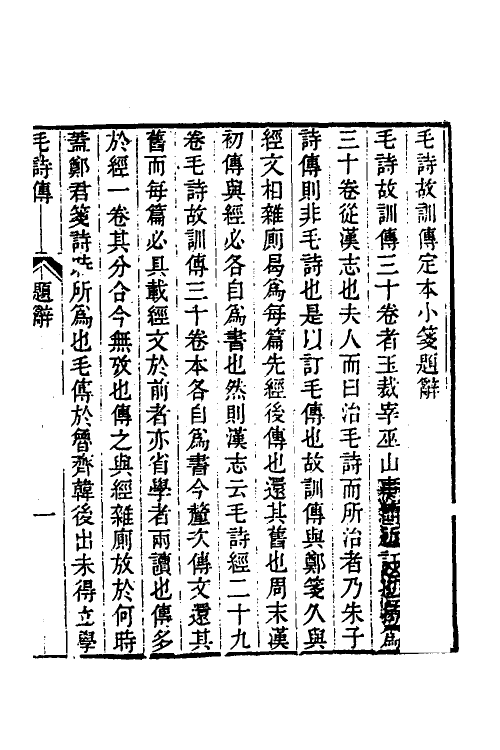 毛詩故訓傳定本小箋題辭
毛詩故訓傳三十卷者玉裁宰巫山事簡所訂也曷爲
三十卷從漢志也夫人而曰治毛詩而所治者乃朱子
詩傳則非毛詩也是以訂毛傳也故訓傳與鄭箋久與
經文相雜廁曷爲每篇先經後傳也還其舊也周末漢
初傳與經必各自爲書也然則漢志云毛詩經二十九
卷毛詩故訓傳三十卷本各自爲書今釐次傳文還其
舊而每篇必具載經文於前者亦省學者兩讀也傳多
於經一卷其分合今無攷也傳之與經雜廁放於何時
蓋鄭君箋詩時所爲也毛傳於魯齊韓後出未得立學
毛詩傳 題辭 一